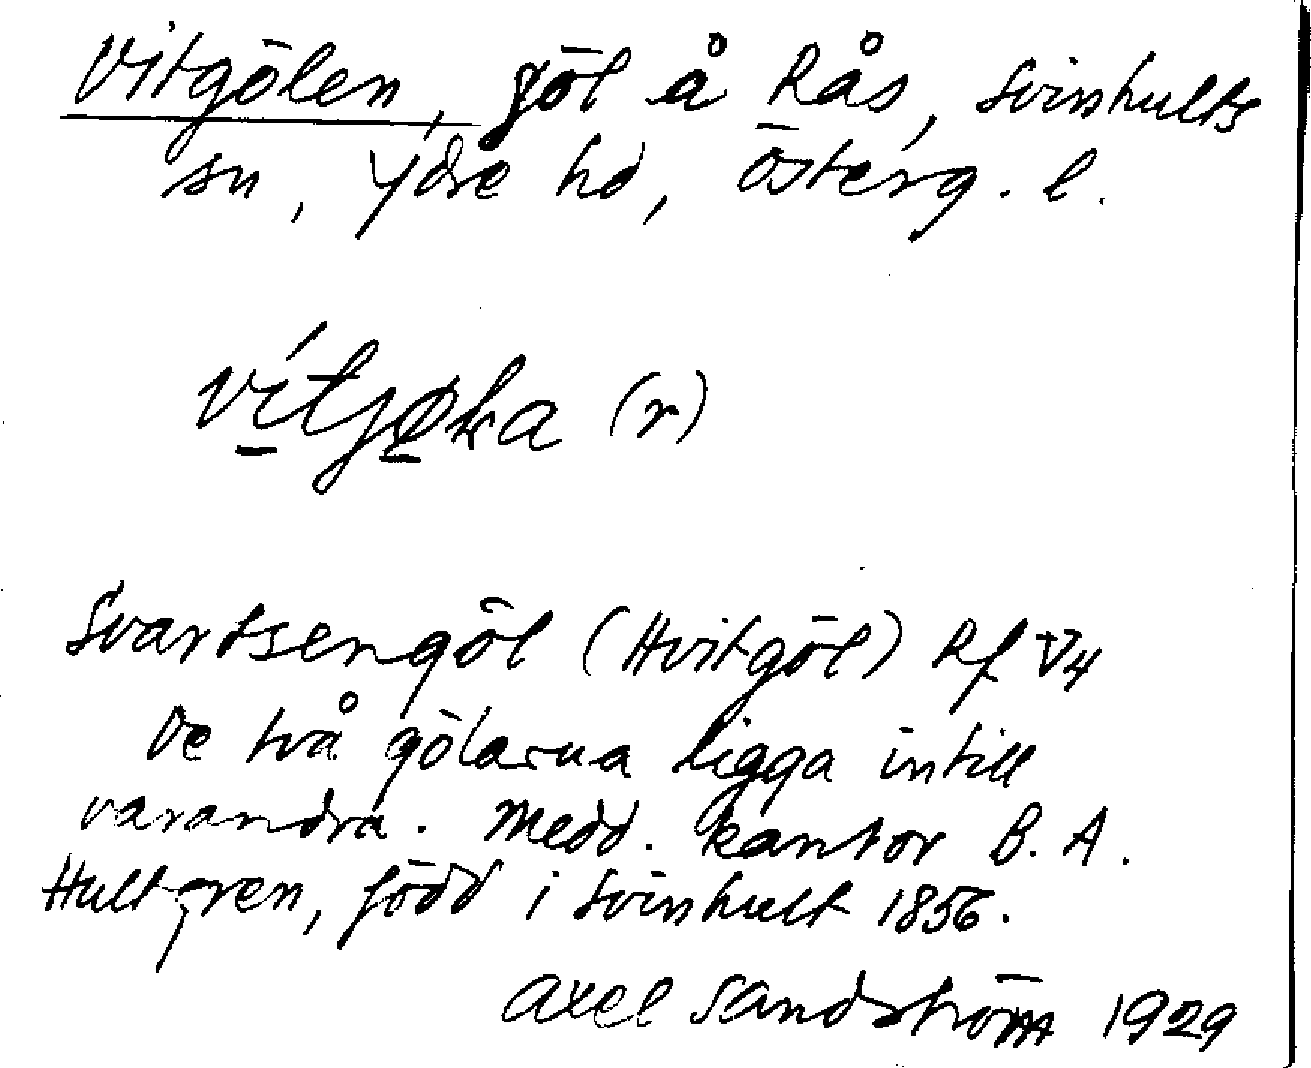 Vitgölen, göl å Rås, Svinhults
sn, Ydre hd, Österg. l.
(r)
Svartsengöl (Hvitgöl) Rf V4
De två gölarna ligga intill
varandra. Medd. kantor B. A.
Hultgren, född i Svinhult 1856.
Axel Sandström 1929